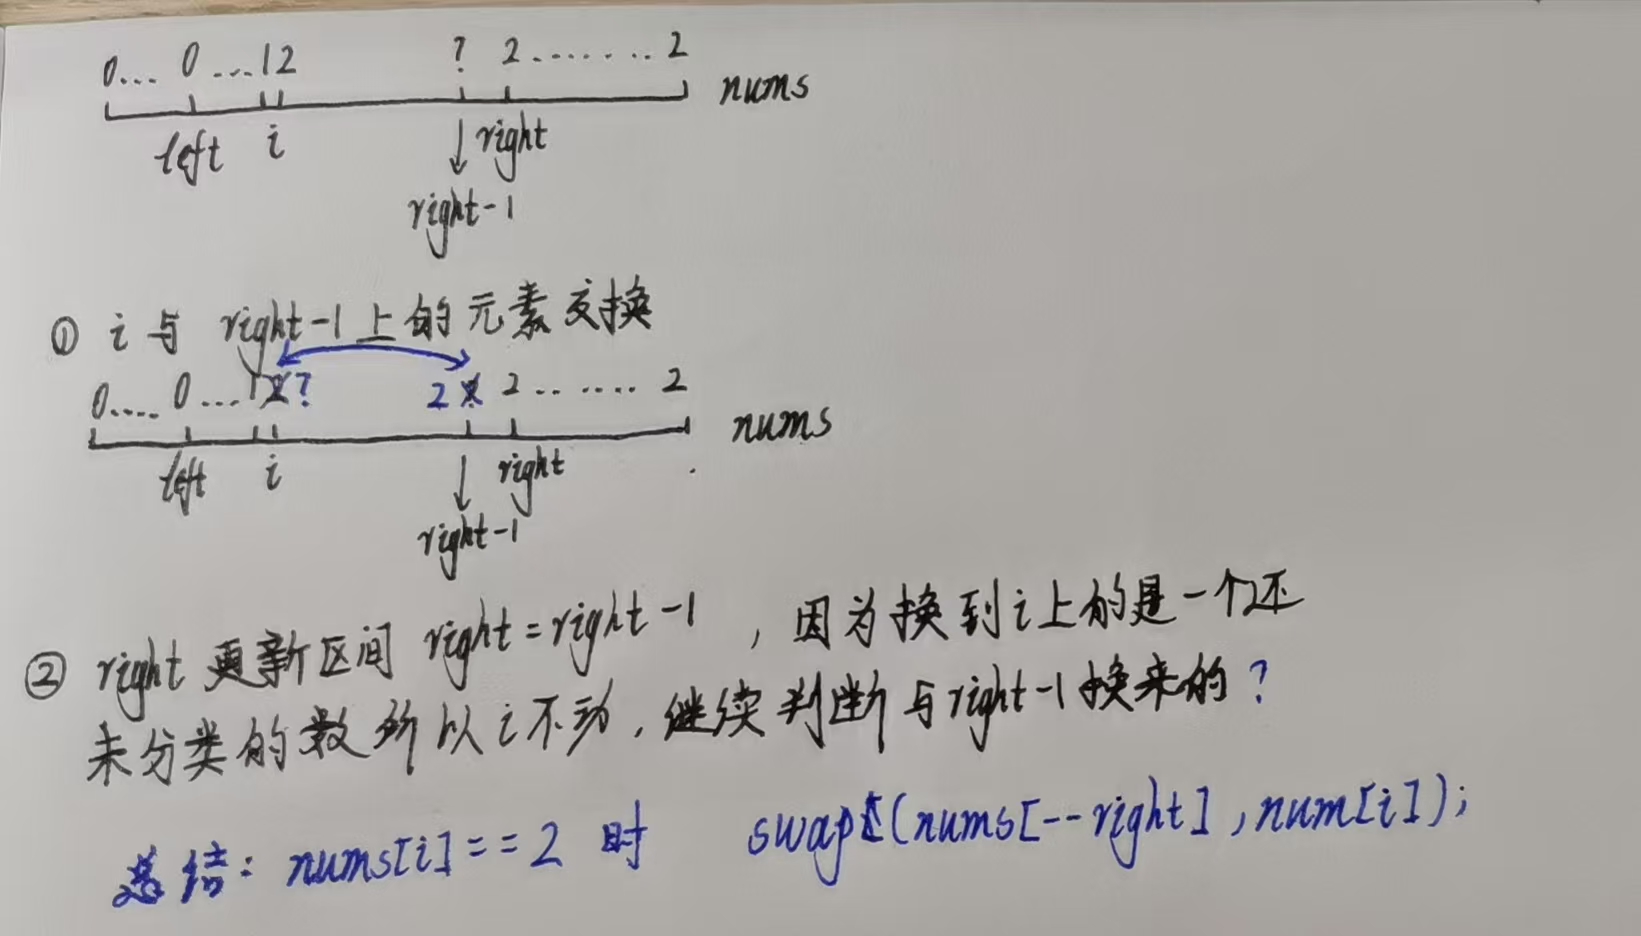 0... 0 ...12 ? 2........2 nums
left i ↓ right
right-1
① i 与 right-1 上的元素交换
0.... 0 ...1 ? 2 2........2 nums
left i ↓ right
right-1
② right 更新区间 right=right-1 ，因为换到i上的是一个还
未分类的数所以i不动，继续判断与right-1换来的?
总结：nums[i]==2 时 swap(nums[--right],num[i]);